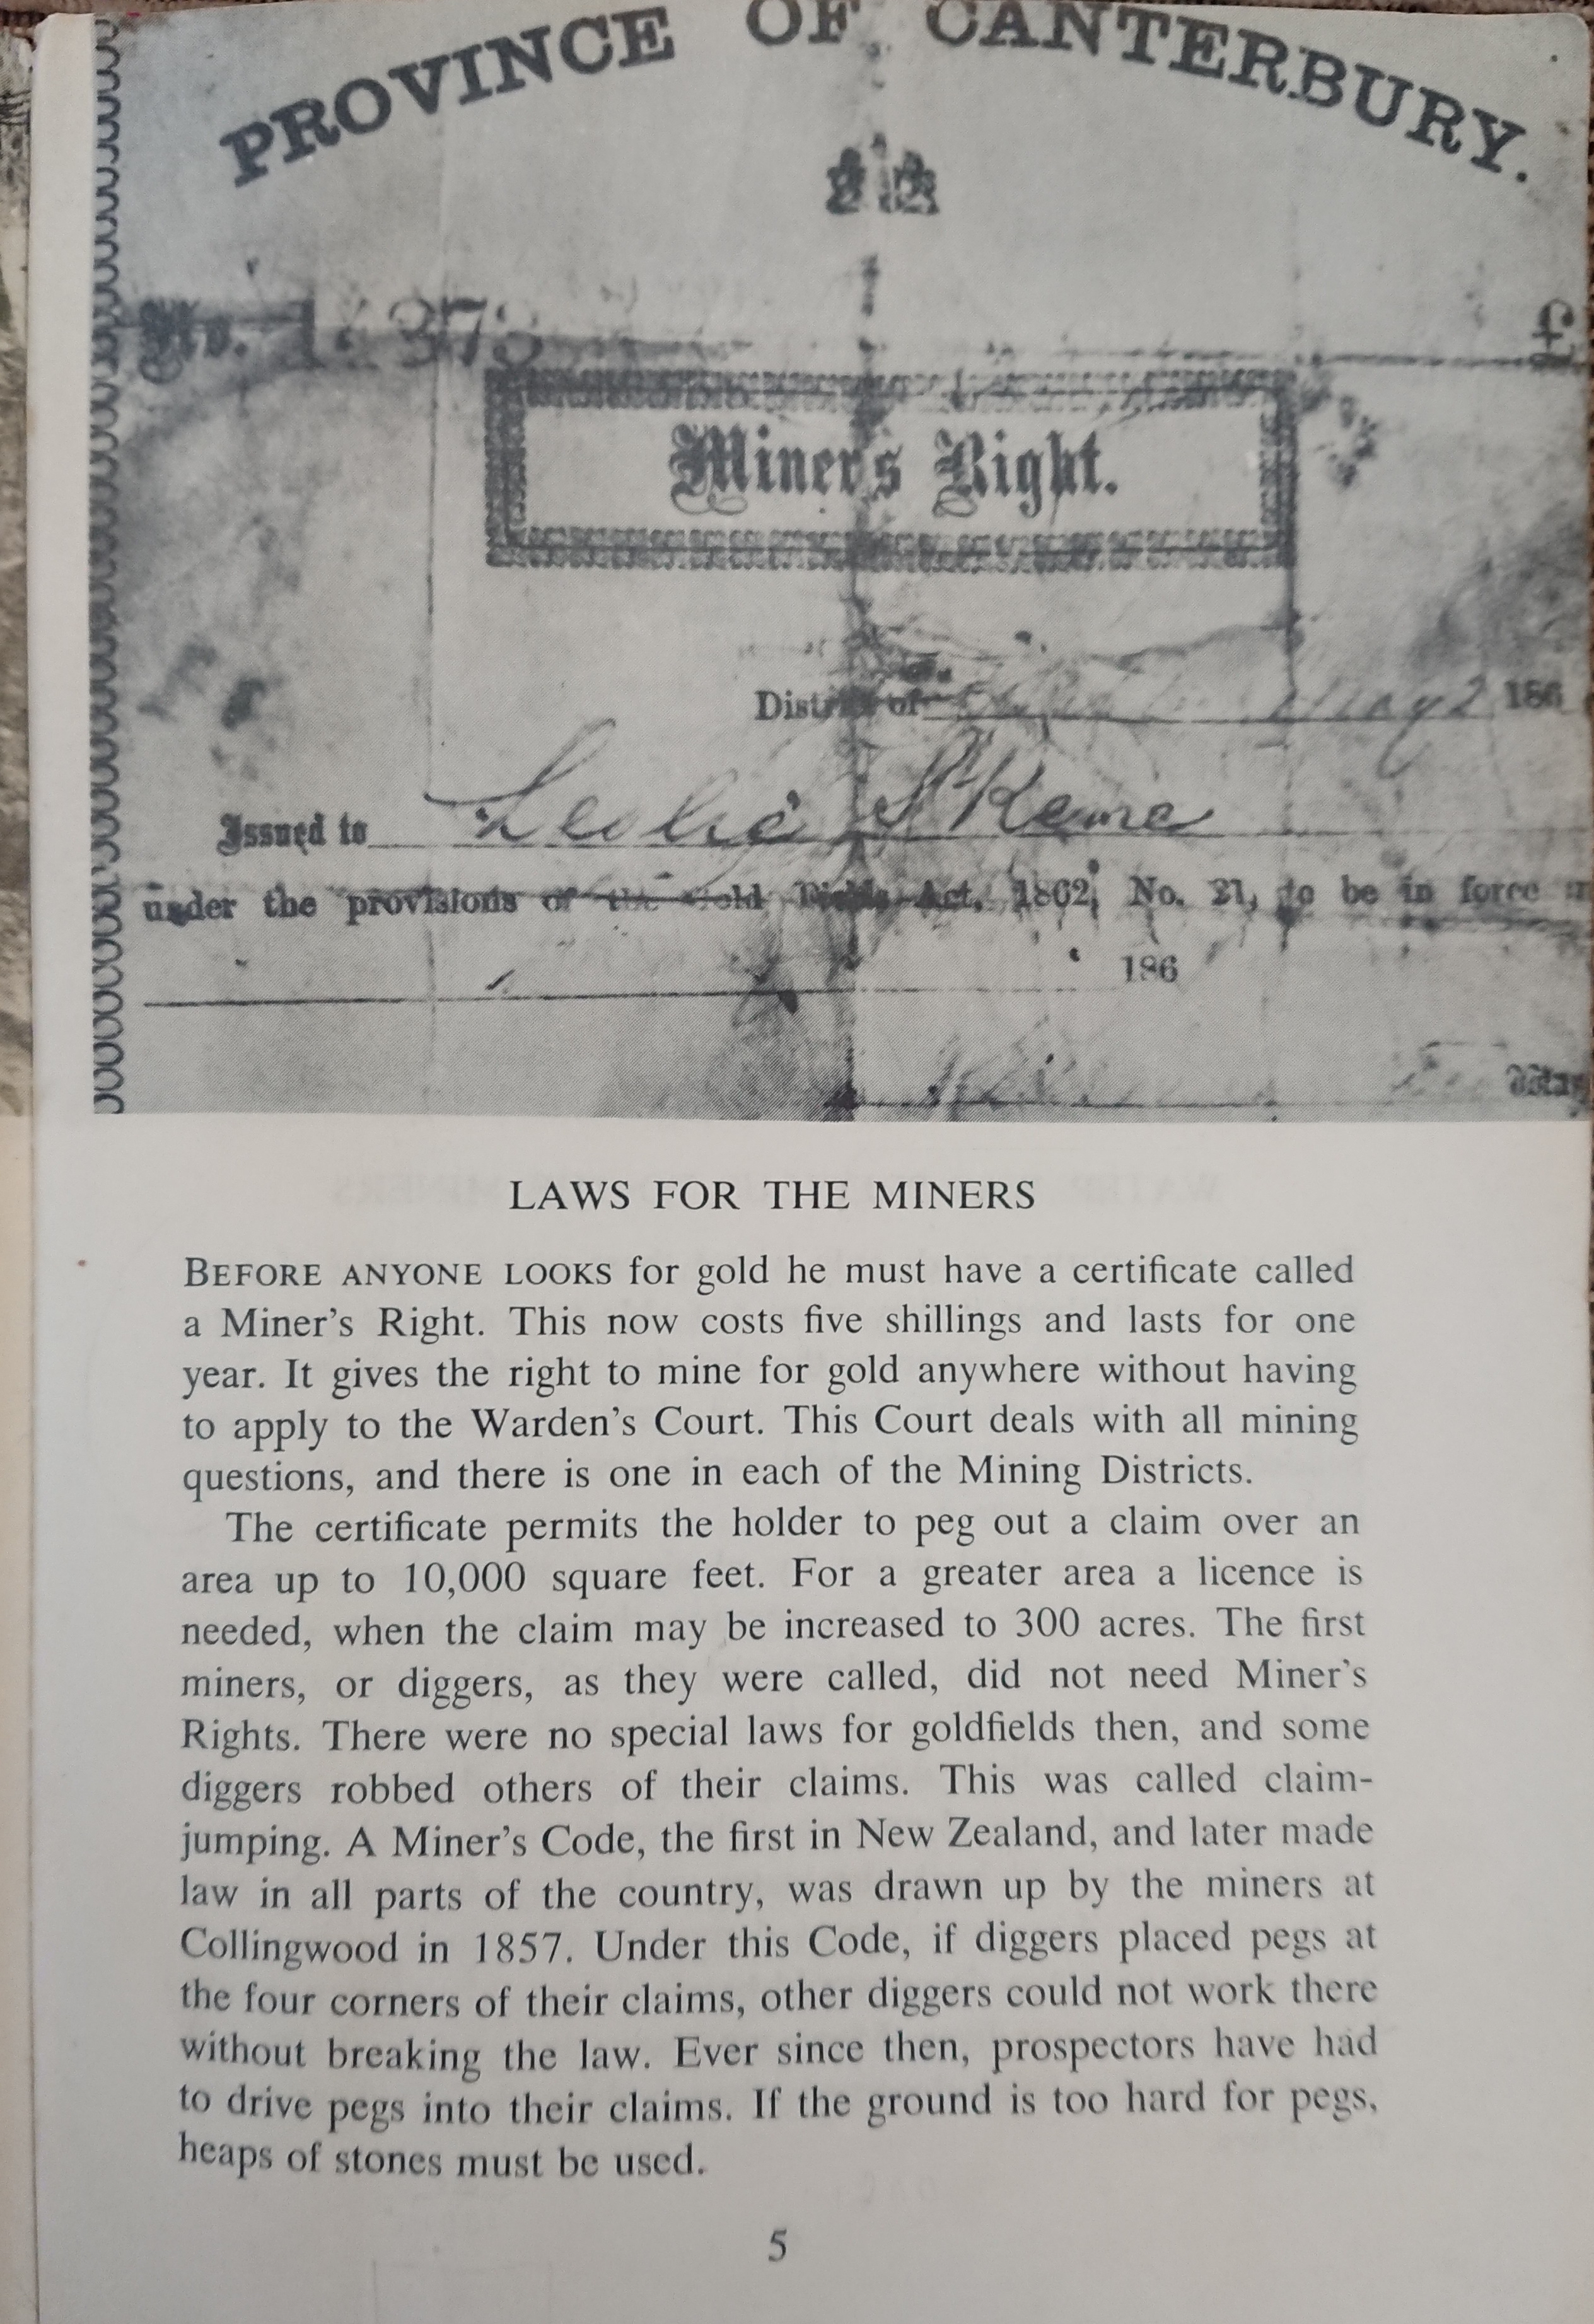 PROVINCE OF CANTERBURY.
No. £
Miner's Right.
District of May 2 186
Issued to Leslie
under the provisions of the Gold Fields Act, 1862, No. 21, to be in force
186
LAWS FOR THE MINERS
BEFORE ANYONE LOOKS for gold he must have a certificate called
a Miner's Right. This now costs five shillings and lasts for one
year. It gives the right to mine for gold anywhere without having
to apply to the Warden's Court. This Court deals with all mining
questions, and there is one in each of the Mining Districts.
The certificate permits the holder to peg out a claim over an
area up to 10,000 square feet. For a greater area a licence is
needed, when the claim may be increased to 300 acres. The first
miners, or diggers, as they were called, did not need Miner's
Rights. There were no special laws for goldfields then, and some
diggers robbed others of their claims. This was called claim-
jumping. A Miner's Code, the first in New Zealand, and later made
law in all parts of the country, was drawn up by the miners at
Collingwood in 1857. Under this Code, if diggers placed pegs at
the four corners of their claims, other diggers could not work there
without breaking the law. Ever since then, prospectors have had
to drive pegs into their claims. If the ground is too hard for pegs,
heaps of stones must be used.
5